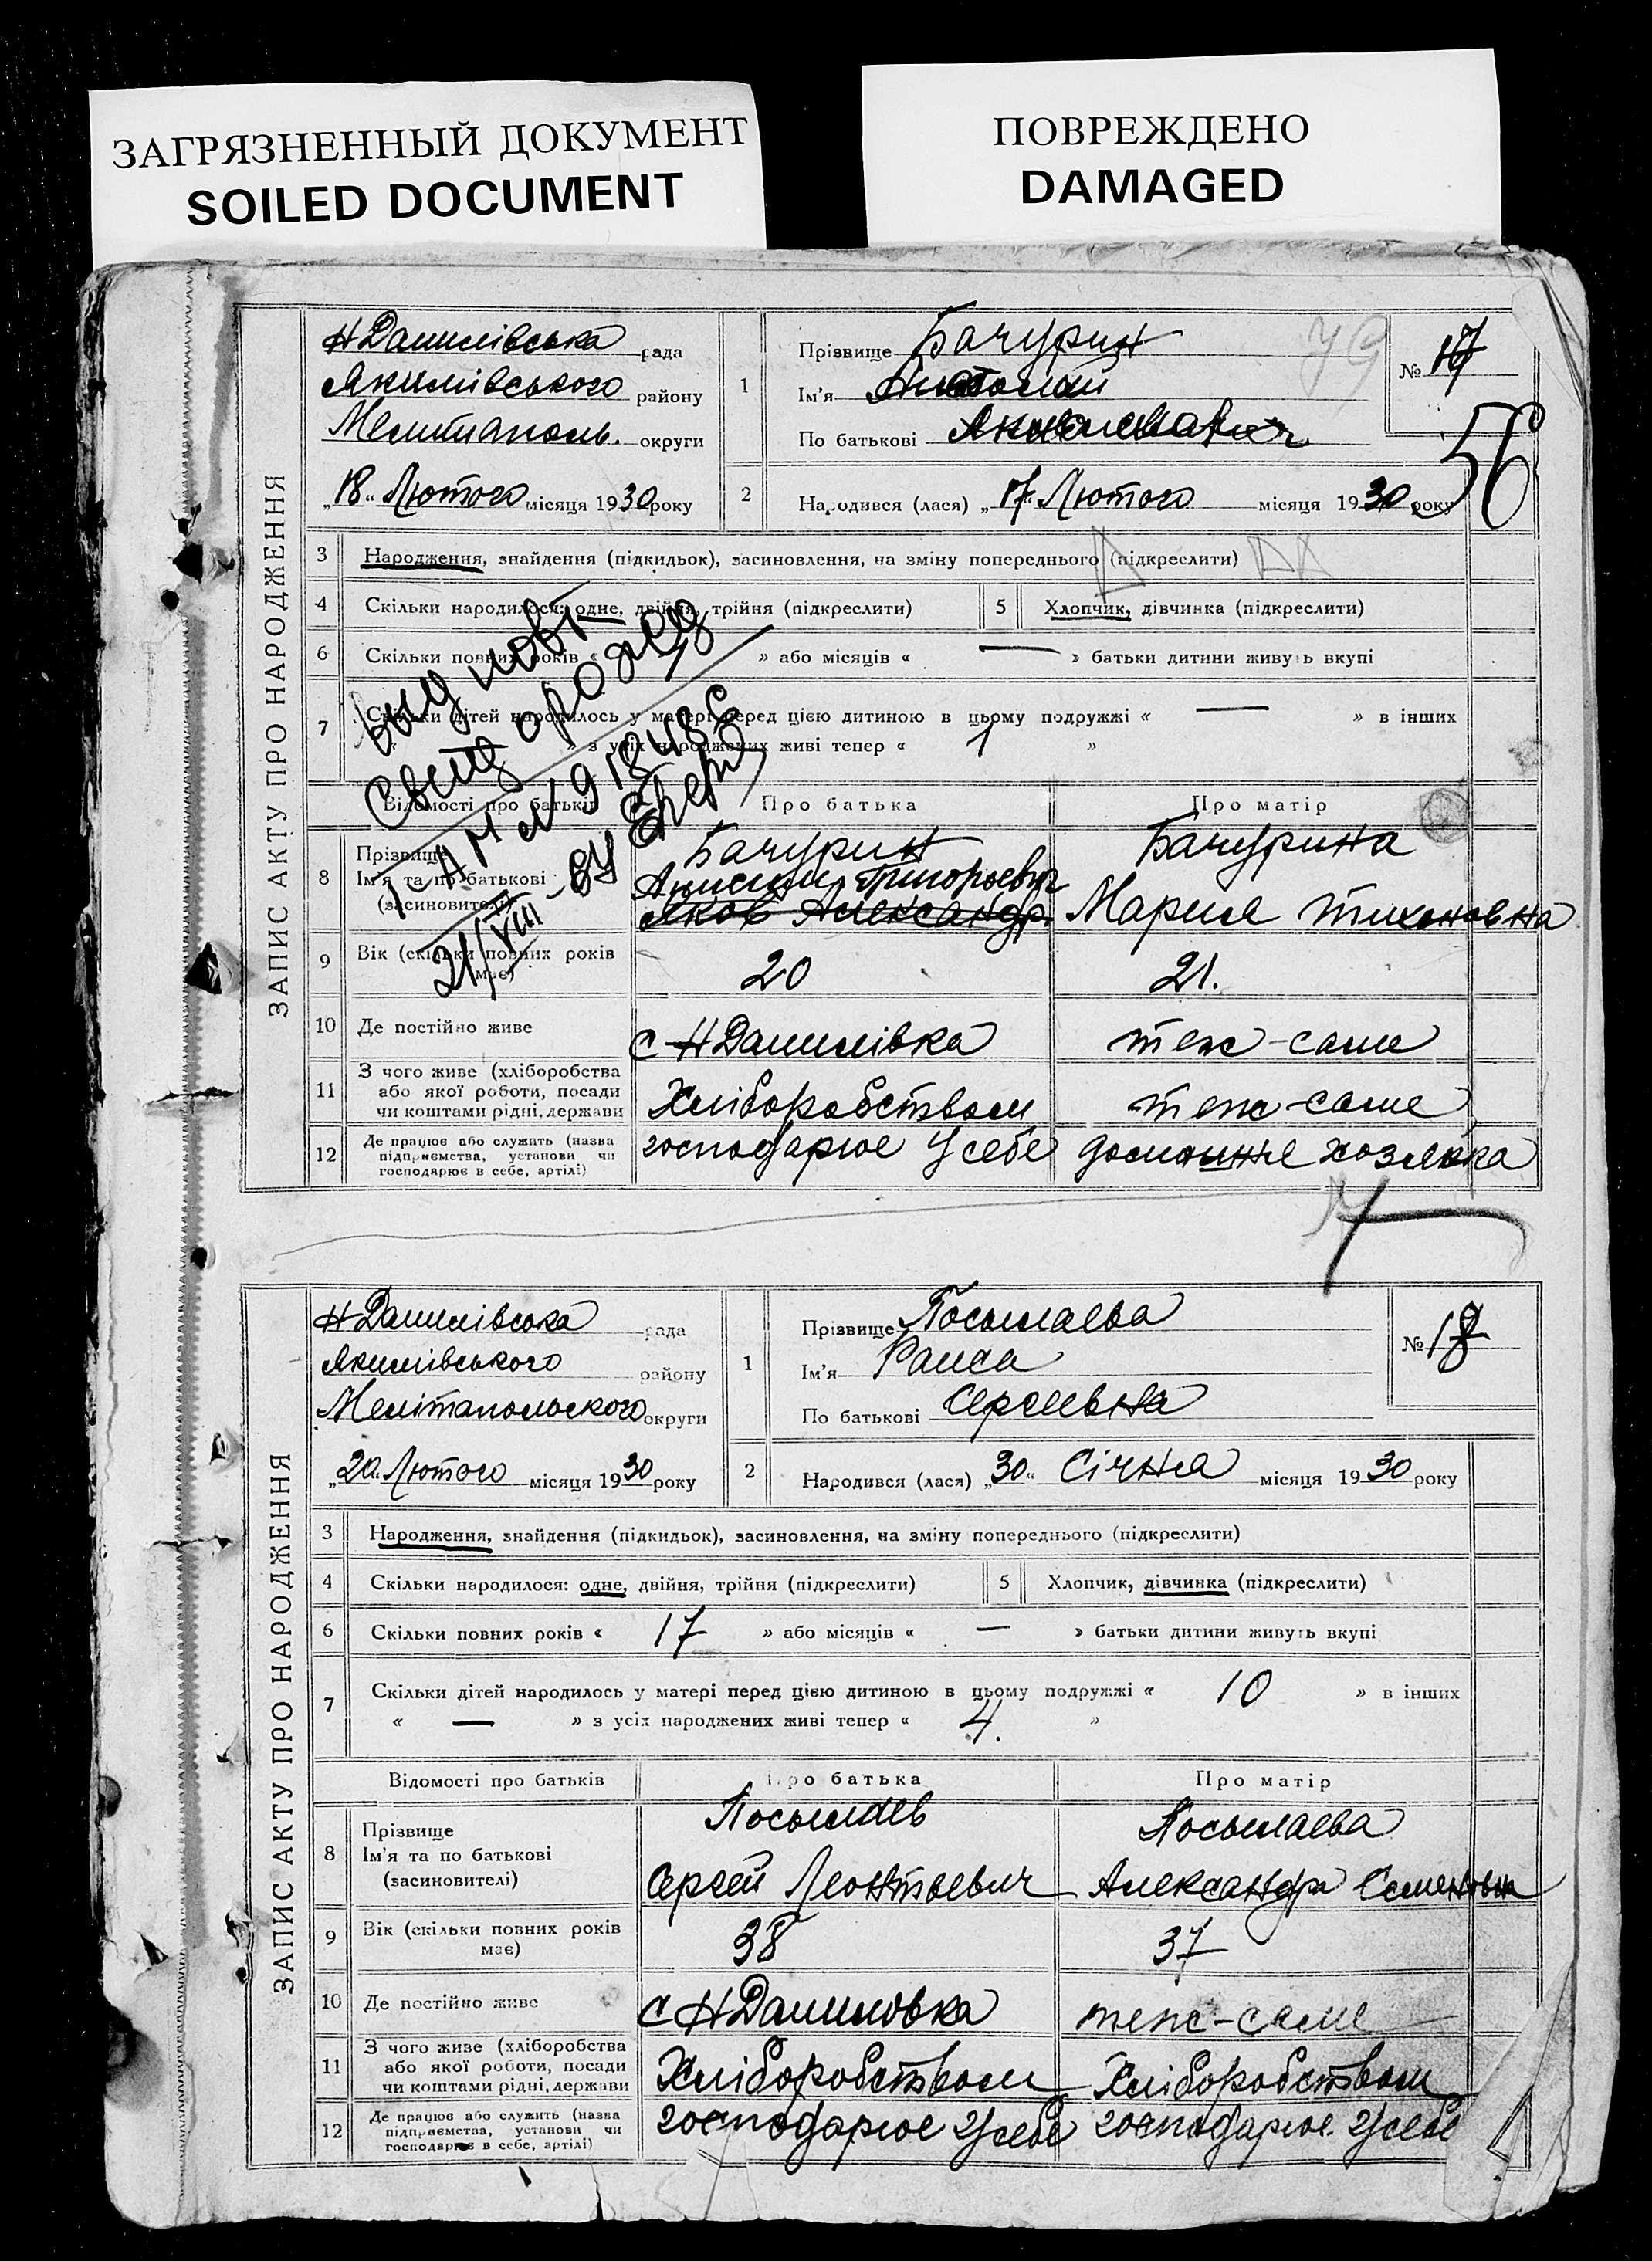 ЗАГРЯЗНЕННЫЙ ДОКУМЕНТ
SOILED DOCUMENT
ПОВРЕЖДЕНО
DAMAGED
ЗАПИС АКТУ ПРО НАРОДЖЕННЯ
Н Данилівська рада
Якимівського району
Мелитополь. округи
„18“ Лютого місяця 1930 року
1
Прізвище Бачурин
Ім'я Анатолий
По батькові
79
№ 17
56
2
Народився (лася) „17“ Лютого місяця 1930 року
3 Народження, знайдення (підкидьок), засиновлення, на зміну попереднього (підкреслити)
4 Скільки народилося: одне, двійня, трійня (підкреслити)
5 Хлопчик, дівчинка (підкреслити)
6 Скільки повних років « » або місяців « — » батьки дитини живуть вкупі
7 Скільки дітей народилось у матері перед цією дитиною в цьому подружжі « — » в інших
« » з усіх народжених живі тепер « 1 »
Выд повт
свид о рожд
21/VIII
Відомості про батьків
Про батька
Про матір
8 Прізвище
Ім'я та по батькові
(засиновителі)
Бачурин
Анисим Григорьевич
Яков Александр
Бачурина
Мария Тихоновна
9 Вік (скільки повних років має) 20 21.
10 Де постійно живе с Н Данилівка теж-саме
11 З чого живе (хліборобства
або якої роботи, посади
чи коштами рідні, держави
Хліборобством теж-саме
12 Де працює або служить (назва
підприємства, установи чи
господарює в себе, артілі)
господарює у себе домашне хозяйка
ЗАПИС АКТУ ПРО НАРОДЖЕННЯ
Н Данилівська рада
Якимівського району
Мелітопольского округи
„20“ Лютого місяця 1930 року
1
Прізвище Посылаева
Ім'я Раиса
По батькові Сергеевна
№ 18
2
Народився (лася) „30“ Січня місяця 1930 року
3 Народження, знайдення (підкидьок), засиновлення, на зміну попереднього (підкреслити)
4 Скільки народилося: одне, двійня, трійня (підкреслити)
5 Хлопчик, дівчинка (підкреслити)
6 Скільки повних років « 17 » або місяців « — » батьки дитини живуть вкупі
7 Скільки дітей народилось у матері перед цією дитиною в цьому подружжі « 10 » в інших
« — » з усіх народжених живі тепер « 4. »
Відомості про батьків
Про батька
Про матір
8 Прізвище
Ім'я та по батькові
(засиновителі)
Посылаев
Сергей Леонтьевич
Посылаева
Александра Семеновна
9 Вік (скільки повних років має) 38 37
10 Де постійно живе с Н Даниловка теж-саме
11 З чого живе (хліборобства
або якої роботи, посади
чи коштами рідні, держави
Хліборобством Хліборобством
12 Де працює або служить (назва
підприємства, установи чи
господарює в себе, артілі)
господарює у себе господарює у себе